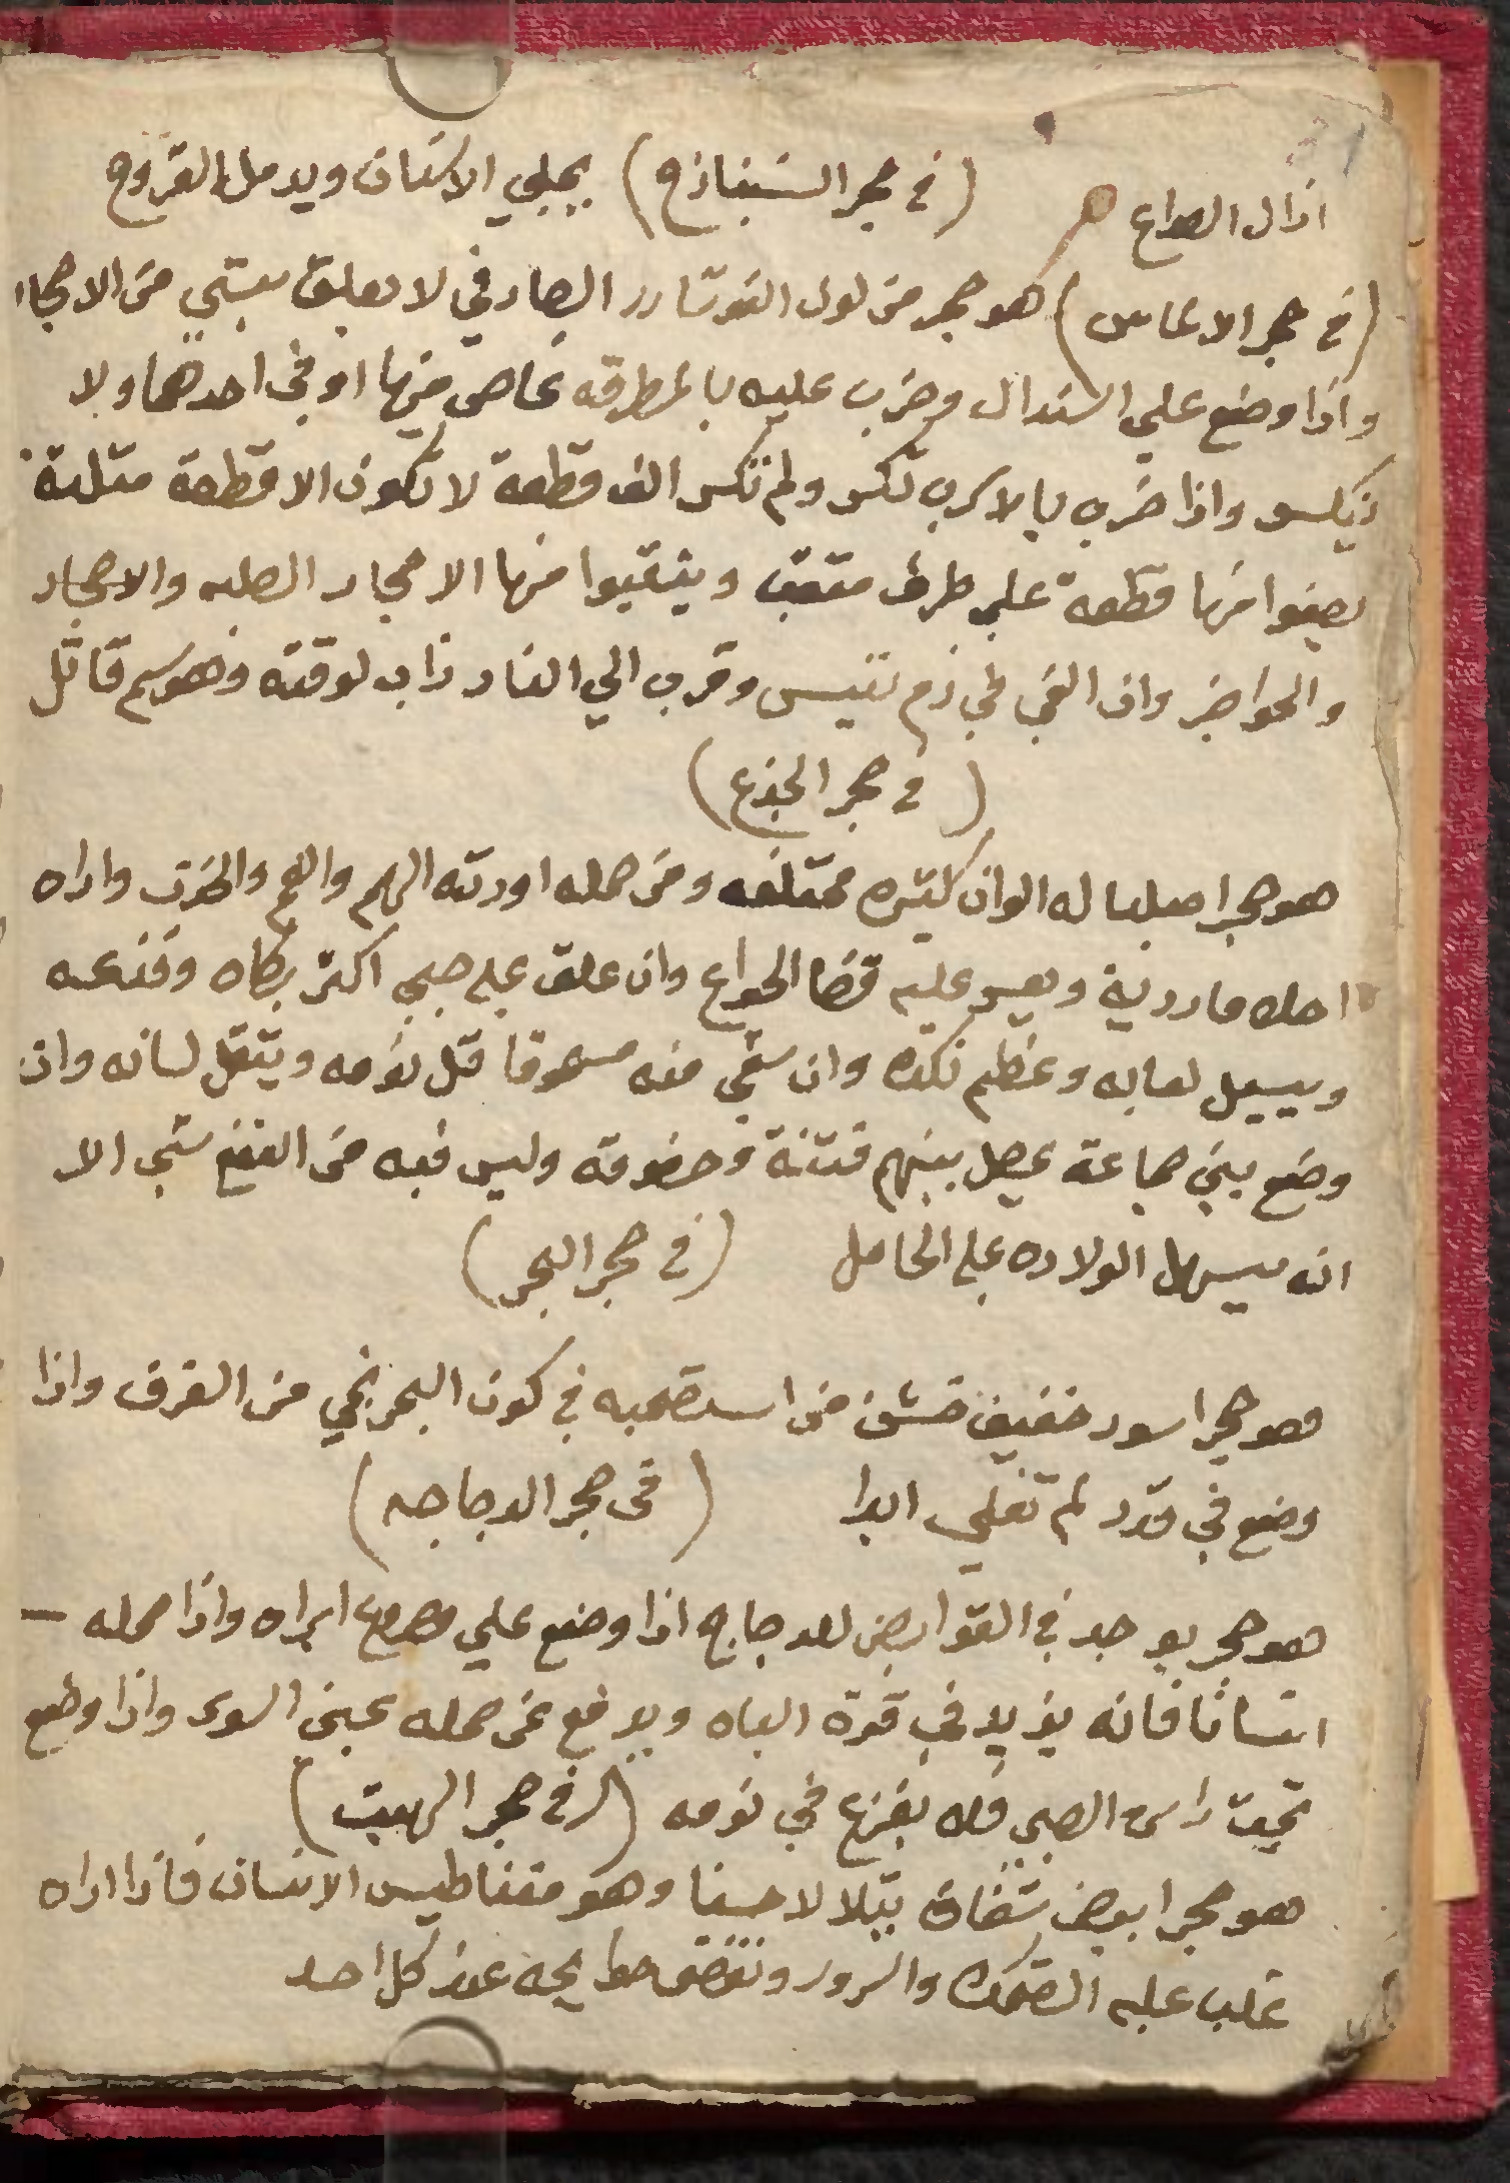 ازال الصداع (في حجر السنباذج) يجلي الاسنان ويدمل القروح
(في حجر الالماس) هو حجر من لون النوشادر الصادفي لا يعلق بشي من الاحجار
واذا وضع علي السندال وضرب عليه بالمطرقه غاص فيها او في احدهما ولا
ينكسر واذا ضرب بالاسرب تكسر ولم تكسر الف قطعة لا تكون الا قطعة مثلثة
يضعوا منها قطعة علي طرف مثقب ويثقبوا منها الاحجار الصلبه والاحجار
والجواهر وان القي في دم تيس وقرب الي النار ذاب لوقته وهو سم قاتل
(في حجر الجذع)
هو حجر اصلبا له الوان كثيره مختلفه ومن حمله اورثه الهم والغم والحزن واراه
احلام ردية ويعسر عليه قضا الحوايج وان علق علي صبي اكثر بكاه وفزعه
ويسيل لعابه وعظم نكده وان سقي منه مسحوقا قل نومه ويثقل لسانه وان
وضع بين جماعة يحصل بينهم فتنة وخصومة وليس فيه من النفع شي الا
انه يسهل الولاده علي الحامل (في حجر البحر)
هو حجر اسود خفيف خشن من استصحبه في كون البحر نجي من الغرق واذا
وضع في قدر لم تغلي ابدا (في حجر الدجاجه)
هو حجر يوجد في القوابض لدجاج اذا وضع علي مصروع ابراه واذا حمله
انسانا فانه يزيد في قوة الباه ويدفع عن حمله عين السوء واذا وضع
تحت راس الصبي فلا يفزع في نومه (في حجر البهت)
هو حجر ابيض شفاف يتلالا حسنا وهو مغناطيس الانسان فاذا اراه
غلب عليه الضحك والسرور وتقضى حوايجه عند كل احد